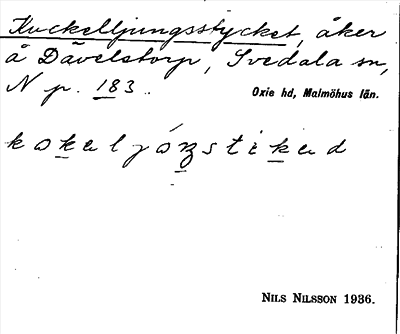 Kuckelljungsstycket, åker
å Dävelstorp, Svedala sn,
N p. 183.
Oxie hd, Malmöhus län.
kokeljóŋstikəd
NILS NILSSON 1936.